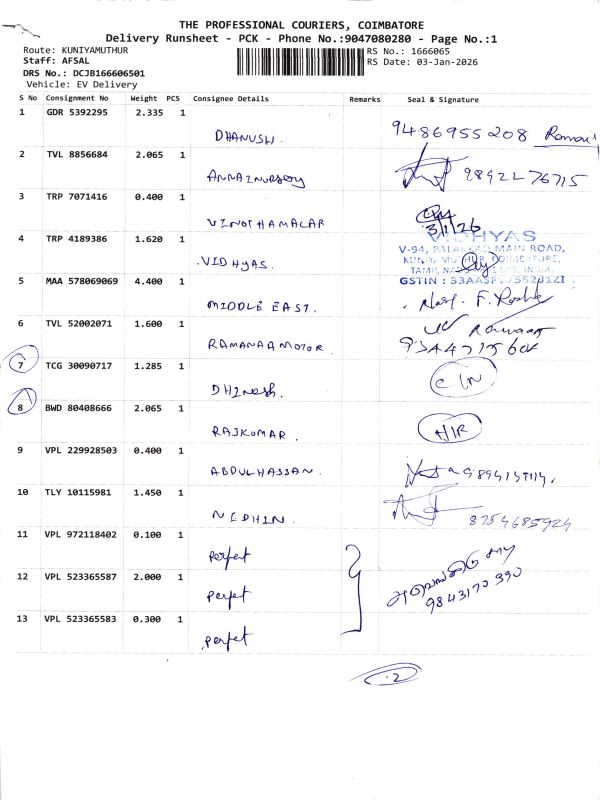 THE PROFESSIONAL COURIERS, COIMBATORE
Delivery Runsheet - PCK - Phone No.:9047080280 - Page No.:1
Route: KUNIYAMUTHUR
RS No.: 1666065
Staff: AFSAL
RS Date: 03-Jan-2026
DRS No.: DCJB166606501
Vehicle: EV Delivery
S No Consignment No Weight PCS Consignee Details Remarks Seal & Signature
1 GDR 5392295 2.335 1
DHANUSH. 9486955208
2 TVL 8856684 2.065 1
ANNAINURSERY 9892276715
3 TRP 7071416 0.400 1
VINOTHAMALAR 3/1/26
4 TRP 4189386 1.620 1
VIDHYAS
V-94, PALAKKAD MAIN ROAD,
.VIDHYAS. KUNIYAMUTHUR, COIMBATORE,
TAMIL NADU INDIA.
5 MAA 578069069 4.400 1
GSTIN :
MIDDLE EAST.
6 TVL 52002071 1.600 1
RAMANAAMOTOR
7 TCG 30090717 1.285 1
DHINESH. C IN
8 BWD 80408666 2.065 1
RAJKUMAR. H/R
9 VPL 229928503 0.400 1
ABDULHASSAN.
10 TLY 10115981 1.450 1
NEDHIN. 8754685924
11 VPL 972118402 0.100 1
perfect
12 VPL 523365587 2.000 1
perfect 9843170390
13 VPL 523365583 0.300 1
perfect
2